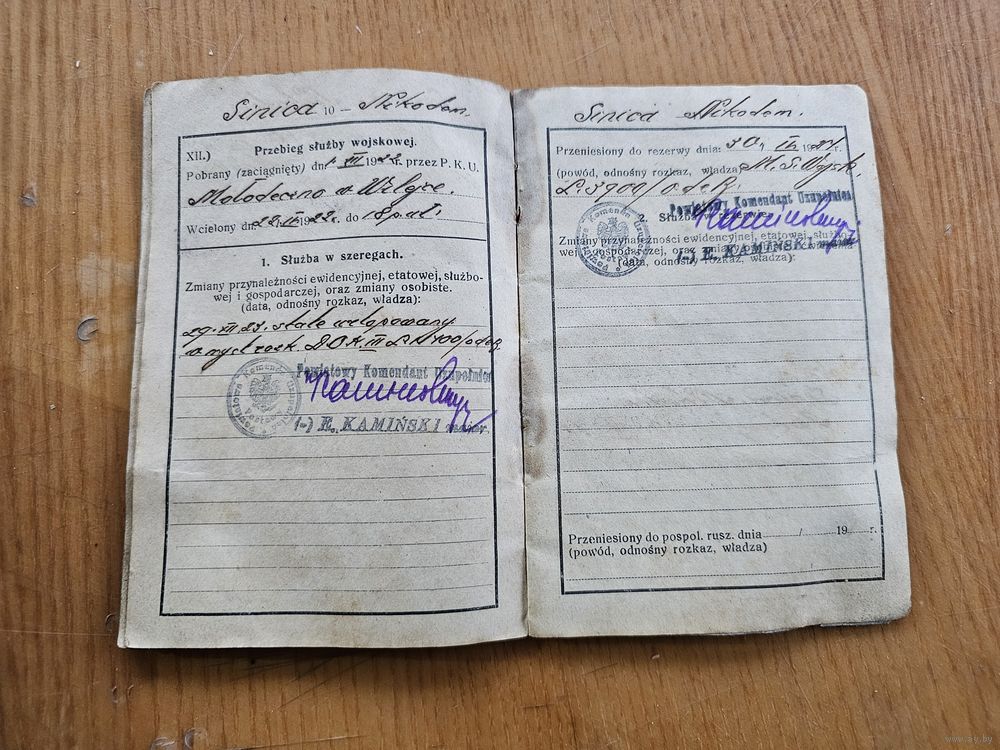 Sinica 10 — Nikodem.
XII.) Przebieg służby wojskowej.
Pobrany (zaciągnięty) dn. XII 1922. przez P. K. U.
Mołodeczno w Wilejce.
Wcielony dn. 1922. do
1. Służba w szeregach.
Zmiany przynależności ewidencyjnej, etatowej, służbo-
wej i gospodarczej, oraz zmiany osobiste.
(data, odnośny rozkaz, władza):
29. XII 23. stale urlopowany
rozk. D.O.K. III
Powiatowy Komendant Uzupełnień
(-) E. KAMIŃSKI major.
Sinica Nikodem.
Przeniesiony do rezerwy dnia: 30. 19 r.
(powód, odnośny rozkaz, władza) M. S. Wojsk.
L. 3900/
Powiatowy Komendant Uzupełnień
2. Służba w rezerwie.
Zmiany przynależności ewidencyjnej, etatowej, służbo-
wej i gospodarczej, oraz zmiany
(data, odnośny rozkaz, władza):
(-) E. KAMIŃSKI
Przeniesiony do pospol. rusz. dnia / 19 r.
(powód, odnośny rozkaz, władza)
www.ay.by